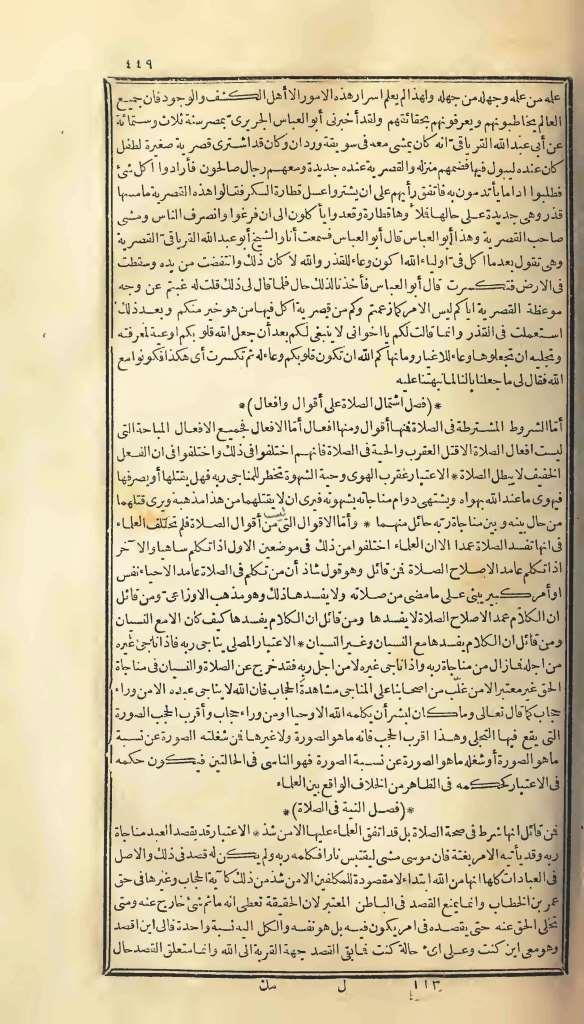 ٤٤٩
علمه من علمه وجهله من جهله ولهذا لم يعلم اسرار هذه الامور الا أهل الكشف والوجود فان جميع
العالم يخاطبونهم ويعرفونهم بحقائقهم ولقد أخبرنى أبو العباس الحريرى بمصر سنة ثلاث وستمائة
عن أبى عبد الله القرباقى انه كان يمشى معه فى سويقة وردان وكان قد اشترى قصرية صغيرة لطفل
كان عنده ليبول فيها فضمهم منزله والقصرية عنده جديدة ومعهم رجال صالحون فأرادوا أكل شئ
فطلبوا اداما يأتدمون به فاتفق رأيهم على ان يشتروا عسل قطارة السكر فقالوا هذه القصرية ما مسها
قذر وهى جديدة على حالها فملأوها قطارة وقعدوا يأكلون الى ان فرغوا وانصرف الناس ومشى
صاحب القصرية وهذا أبو العباس قال أبو العباس فسمعت أنا والشيخ أبو عبد الله القرباقى القصرية
وهى تقول بعد ما أكل فىّ اولياء الله اكون وعاء للقذر والله لا كان ذلك وانتفضت من يده وسقطت
فى الارض فتكسرت قال أبو العباس فأخذنا لذلك حال فلما قال لى ذلك قلت له غبتم عن وجه
موعظة القصرية اياكم ليس الامر كما زعمتم وكم من قصرية اكل فيها من هو خير منكم وبعد ذلك
استعملت فى القذر وانما قالت لكم يا اخوانى لا ينبغى لكم بعد أن جعل الله قلوبكم اوعية لمعرفته
وتجليه ان تجعلوها وعاء للاغيار وما نهاكم الله ان تكون قلوبكم وعاء له ثم تكسرت أى هكذا فكونوا مع
الله فقال لى ما جعلنا بالنا لما نبهتنا عليه
*(فصل اشتمال الصلاة على أقوال وافعال)*
أمّا الشروط المشترطة فى الصلاة فمنها أقوال ومنها افعال أمّا الافعال فجميع الافعال المباحة التى
ليست افعال الصلاة الاقتل العقرب والحية فى الصلاة فانهم اختلفوا فى ذلك واختلفوا فى ان الفعل
الخفيف لا يبطل الصلاة * الاعتبار عقرب الهوى وحية الشهوة تخطر للمناجى ربه فهل يقتلها أو يصرفها
فيهوى ما عند الله بهواه ويشتهى دوام مناجاته بشهوته فيرى ان لا يقتلهما من هذا مذهبه ويرى قتلهما
من حال بينه وبين مناجاة ربه حائل منهما * وأمّا الاقوال التى ليست من أقوال الصلاة فلم تختلف العلماء
فى انها تفسد الصلاة عمدا الا ان العلماء اختلفوا من ذلك فى موضعين الاول اذا تكلم ساهيا والآخر
اذا تكلم عامد الاصلاح الصلاة فمن قائل وهو قول شاذ أن من تكلم فى الصلاة عامد الاحياء نفس
او أمر كبير يبنى على ما مضى من صلاته ولا يفسدها ذلك وهو مذهب الاوزاعى ومن قائل
ان الكلام عمد الاصلاح الصلاة لا يفسدها ومن قائل ان الكلام يفسدها كيف كان الا مع النسيان
ومن قائل ان الكلام يفسدها مع النسيان وغير النسيان * الاعتبار المصلى يناجى ربه فاذا ناجى غيره
من اجله فما زال من مناجاة ربه واذا ناجى غيره لا من اجل ربه فقد خرج عن الصلاة والنسيان فى مناجاة
الحق غير معتبر الا من غلّب من أصحابنا على المناجى مشاهدة الحجاب فان الله لا يناجى عبده الا من وراء
حجاب كما قال تعالى وما كان لبشر أن يكلمه الله الا وحيا او من وراء حجاب وأقرب الحجب الصورة
التى يقع فيها التجلى وهذا اقرب الحجب فانه ما هو الصورة ولا غيرها فمن شغلته الصورة عن نسبة
ما هو الصورة أو شغله ما هو الصورة عن نسبة الصورة فهو الناسى فى الحالتين فيكون حكمه
فى الاعتبار كحكمه فى الظاهر من الخلاف الواقع بين العلماء
*(فصل النية فى الصلاة)*
فمن قائل انها شرط فى صحة الصلاة بل قد اتفق العلماء عليها الا من شذ * الاعتبار قد يقصد العبد مناجاة
ربه وقد يأتيه الامر بغتة فان موسى مشى ليقتبس نارا فكلمه ربه ولم يكن له قصد فى ذلك والاصل
فى العبادات كلها انها من الله ابتداء لا مقصودة للمكلفين الا من شذ من ذلك كآية الحجاب وغيرها فى حق
عمر بن الخطاب وانما يمنع القصد فى الباطن المعتبر لان الحقيقة تعطى انه ما ثم شئ خارج عنه ومتى
تخلى الحق عنه حتى يقصده فى امر يكون فيه بل هو نفسه والكل اليه نسبة واحدة فالى اين اقصد
وهو معى اين كنت وعلى اىّ حالة كنت فما بقى القصد جهة القربة الى الله وانما متعلق القصد حال
١١٣ ل مك